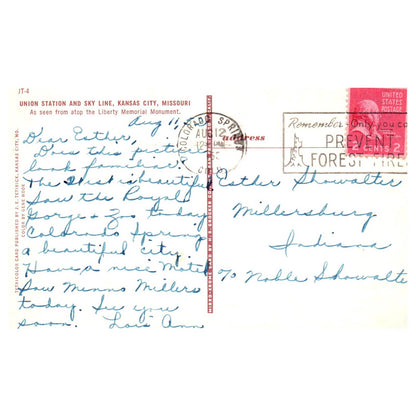 JT-4
UNION STATION AND SKY LINE, KANSAS CITY, MISSOURI
As seen from atop the Liberty Memorial Monument.
Aug 11
Dear Esther,
Does this picture
look familiar?
The West is beautiful
Saw the Royal
Gorge & Zoo today
Colorado Spring
a beautiful city
Have a nice Motel
Saw Menno Millers
today. See you
soon. Lois Ann
COLORADO SPRINGS
AUG 12
address
Remember-Only you ca
PREVENT
FOREST FIRE
UNITED STATES
POSTAGE
CENTS 2
Esther Showalter
Millersburg
Indiana
c/o Noble Showalter